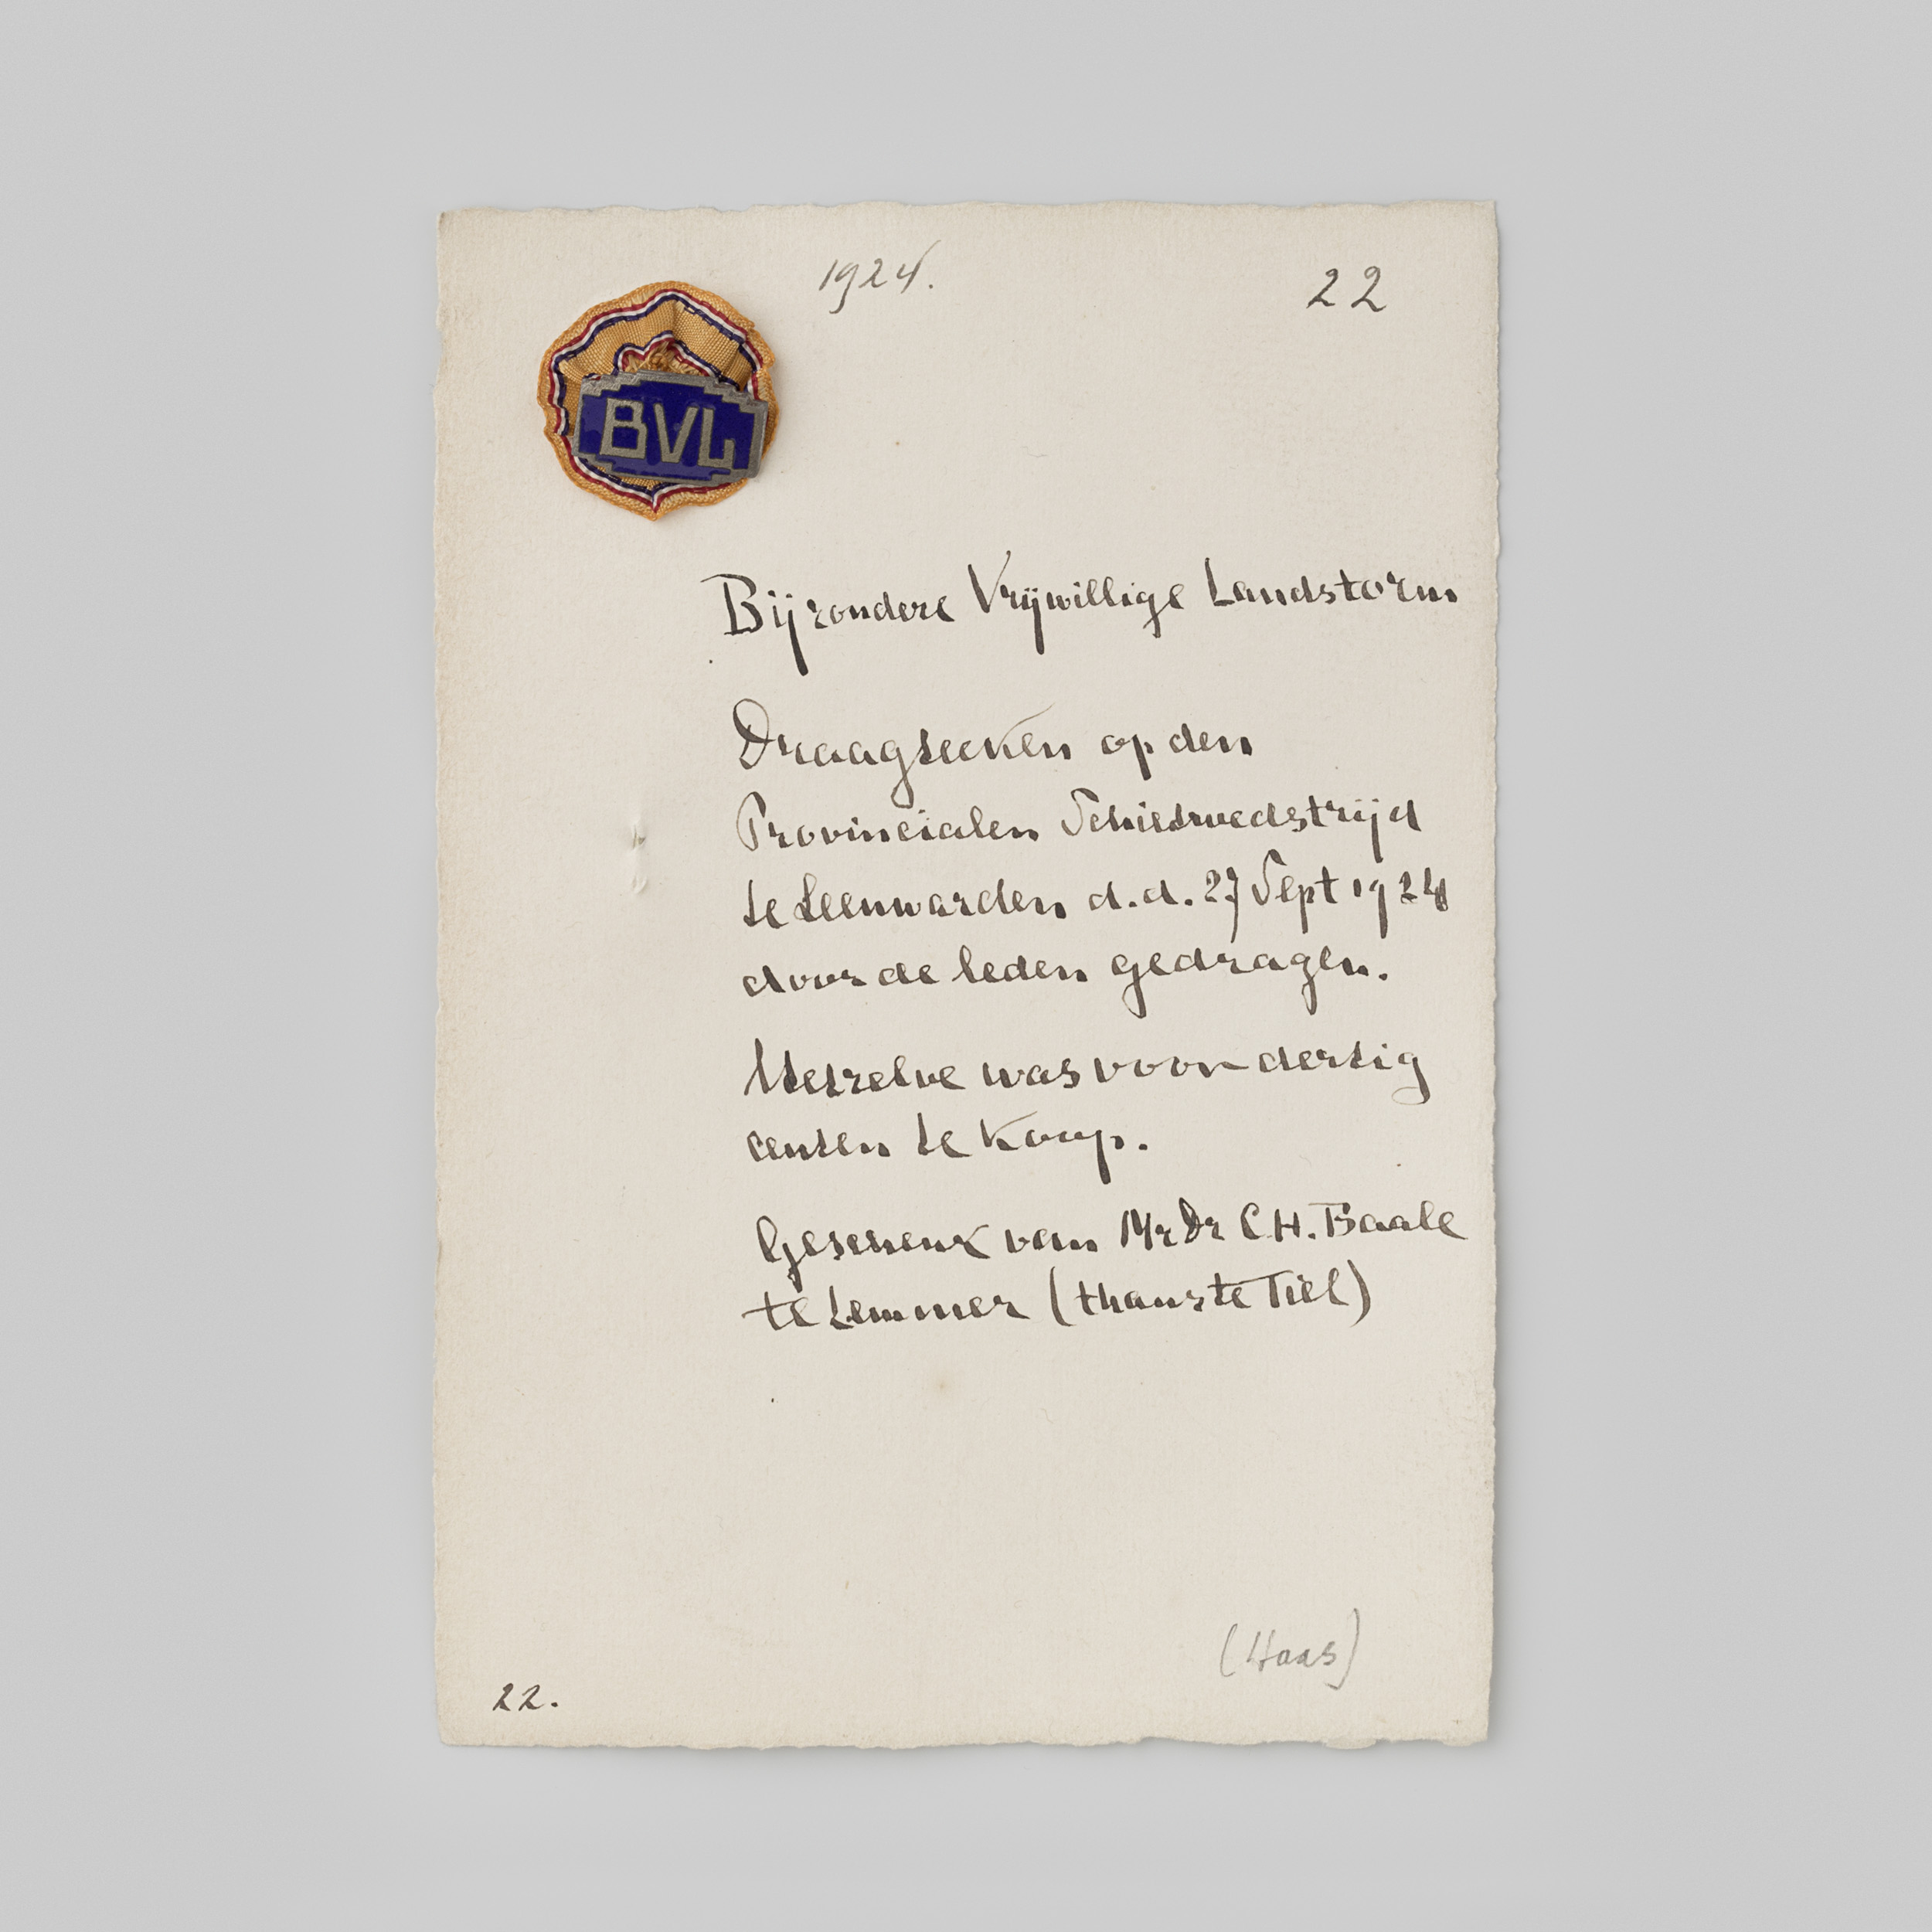 1924.
22
BVL
Bijzondere Vrijwillige Landstorm
Draagteeken op den
Provincialen Schietwedstrijd
te Leeuwarden d.d. 27 Sept 1924
door de leden gedragen.
Hetzelve was voor dertig
centen te koop.
Geschenk van Mr Dr C.H. Baale
te Lemmer (thans te Tiel)
(Haas)
22.